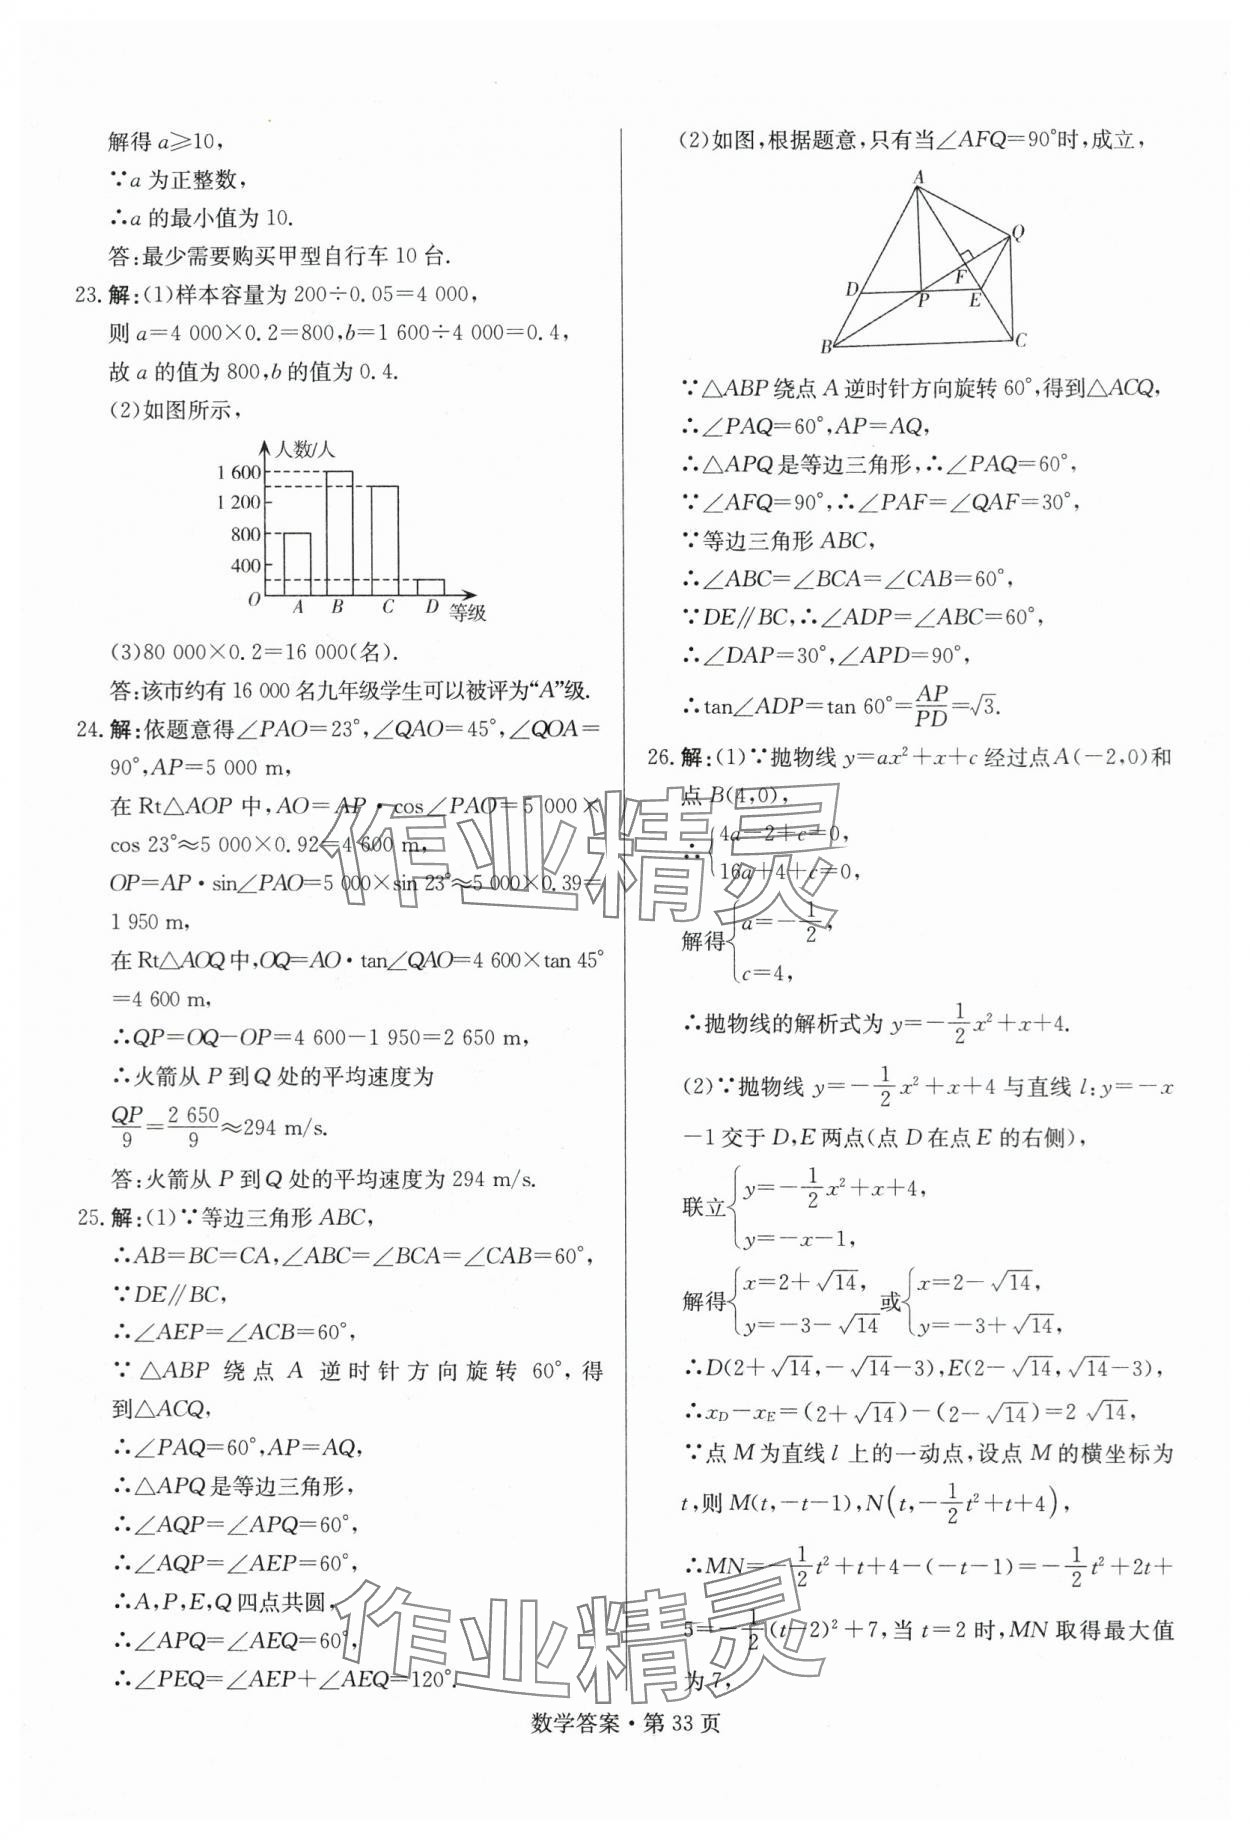 解得 a≥10,
∵a 为正整数,
∴a 的最小值为 10.
答:最少需要购买甲型自行车 10 台.
23. 解:(1)样本容量为 200÷0.05=4 000,
则 a=4 000×0.2=800,b=1 600÷4 000=0.4,
故 a 的值为 800,b 的值为 0.4.
(2)如图所示,
人数/人
1 600
1 200
800
400
O A B C D 等级
(3)80 000×0.2=16 000(名).
答:该市约有 16 000 名九年级学生可以被评为“A”级.
24. 解:依题意得∠PAO=23°,∠QAO=45°,∠QOA=
90°,AP=5 000 m,
在 Rt△AOP 中,AO=AP·cos∠PAO=5 000×
cos 23°≈5 000×0.92=4 600 m,
OP=AP·sin∠PAO=5 000×sin 23°≈5 000×0.39=
1 950 m,
在 Rt△AOQ 中,OQ=AO·tan∠QAO=4 600×tan 45°
=4 600 m,
∴QP=OQ−OP=4 600−1 950=2 650 m,
∴火箭从 P 到 Q 处的平均速度为
QP/9=2 650/9≈294 m/s.
答:火箭从 P 到 Q 处的平均速度为 294 m/s.
25. 解:(1)∵等边三角形 ABC,
∴AB=BC=CA,∠ABC=∠BCA=∠CAB=60°,
∵DE∥BC,
∴∠AEP=∠ACB=60°,
∵△ABP 绕点 A 逆时针方向旋转 60°,得
到△ACQ,
∴∠PAQ=60°,AP=AQ,
∴△APQ 是等边三角形,
∴∠AQP=∠APQ=60°,
∴∠AQP=∠AEP=60°,
∴A,P,E,Q 四点共圆,
∴∠APQ=∠AEQ=60°,
∴∠PEQ=∠AEP+∠AEQ=120°.
(2)如图,根据题意,只有当∠AFQ=90°时,成立,
A
Q
F
D P E
B C
∵△ABP 绕点 A 逆时针方向旋转 60°,得到△ACQ,
∴∠PAQ=60°,AP=AQ,
∴△APQ 是等边三角形,∴∠PAQ=60°,
∵∠AFQ=90°,∴∠PAF=∠QAF=30°,
∵等边三角形 ABC,
∴∠ABC=∠BCA=∠CAB=60°,
∵DE∥BC,∴∠ADP=∠ABC=60°,
∴∠DAP=30°,∠APD=90°,
∴tan∠ADP=tan 60°=AP/PD=√3.
26. 解:(1)∵抛物线 y=ax²+x+c 经过点 A(−2,0)和
点 B(4,0),
∴{4a−2+c=0,
16a+4+c=0,
解得{a=−1/2,
c=4,
∴抛物线的解析式为 y=−1/2x²+x+4.
(2)∵抛物线 y=−1/2x²+x+4 与直线 l:y=−x
−1 交于 D,E 两点(点 D 在点 E 的右侧),
联立{y=−1/2x²+x+4,
y=−x−1,
解得{x=2+√14, 或{x=2−√14,
y=−3−√14 y=−3+√14,
∴D(2+√14,−√14−3),E(2−√14,√14−3),
∴x_D−x_E=(2+√14)−(2−√14)=2 √14,
∵点 M 为直线 l 上的一动点,设点 M 的横坐标为
t,则 M(t,−t−1),N(t,−1/2t²+t+4),
∴MN=−1/2t²+t+4−(−t−1)=−1/2t²+2t+
5=−1/2(t−2)²+7,当 t=2 时,MN 取得最大值
为 7,
作业精灵
作业精灵
数学答案·第 33 页